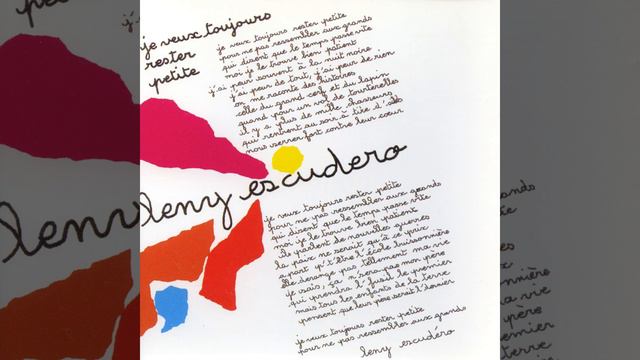 je veux toujours
rester
petite
je veux toujours rester petite
pour ne pas ressembler aux grands
qui disent que le temps passe vite
moi je le trouve bien patient
j'ai peur souvent à la nuit noire
j'ai peur de tout, j'ai peur de rien
on me raconte des histoires
celle du grand cerf et du lapin
quand pour un vol de tourterelles
il y a plus de mille chasseurs
qui rentrent au soir à tire d'
nous serrer fort contre leur coeur
leny escudero
je veux toujours rester petite
pour ne pas ressembler aux grands
qui disent que le temps passe vite
moi je le trouve bien patient
ils parlent de nouvelles guerres
la paix ne serait qu'à ce prix
apart p't'être l'école buissonnière
elle dérange pas tellement ma vie
je sais, ça n'sera pas mon père
qui prendra l'fusil le premier
mais tous les enfants de la terre
pensent que leur père serait l'dernier
je veux toujours rester petite
pour ne pas ressembler aux grands
leny escudéro